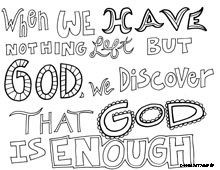 When WE HAVE
NOTHING Left BUT
GOD, we Discover
THAT GOD
IS ENOUGH